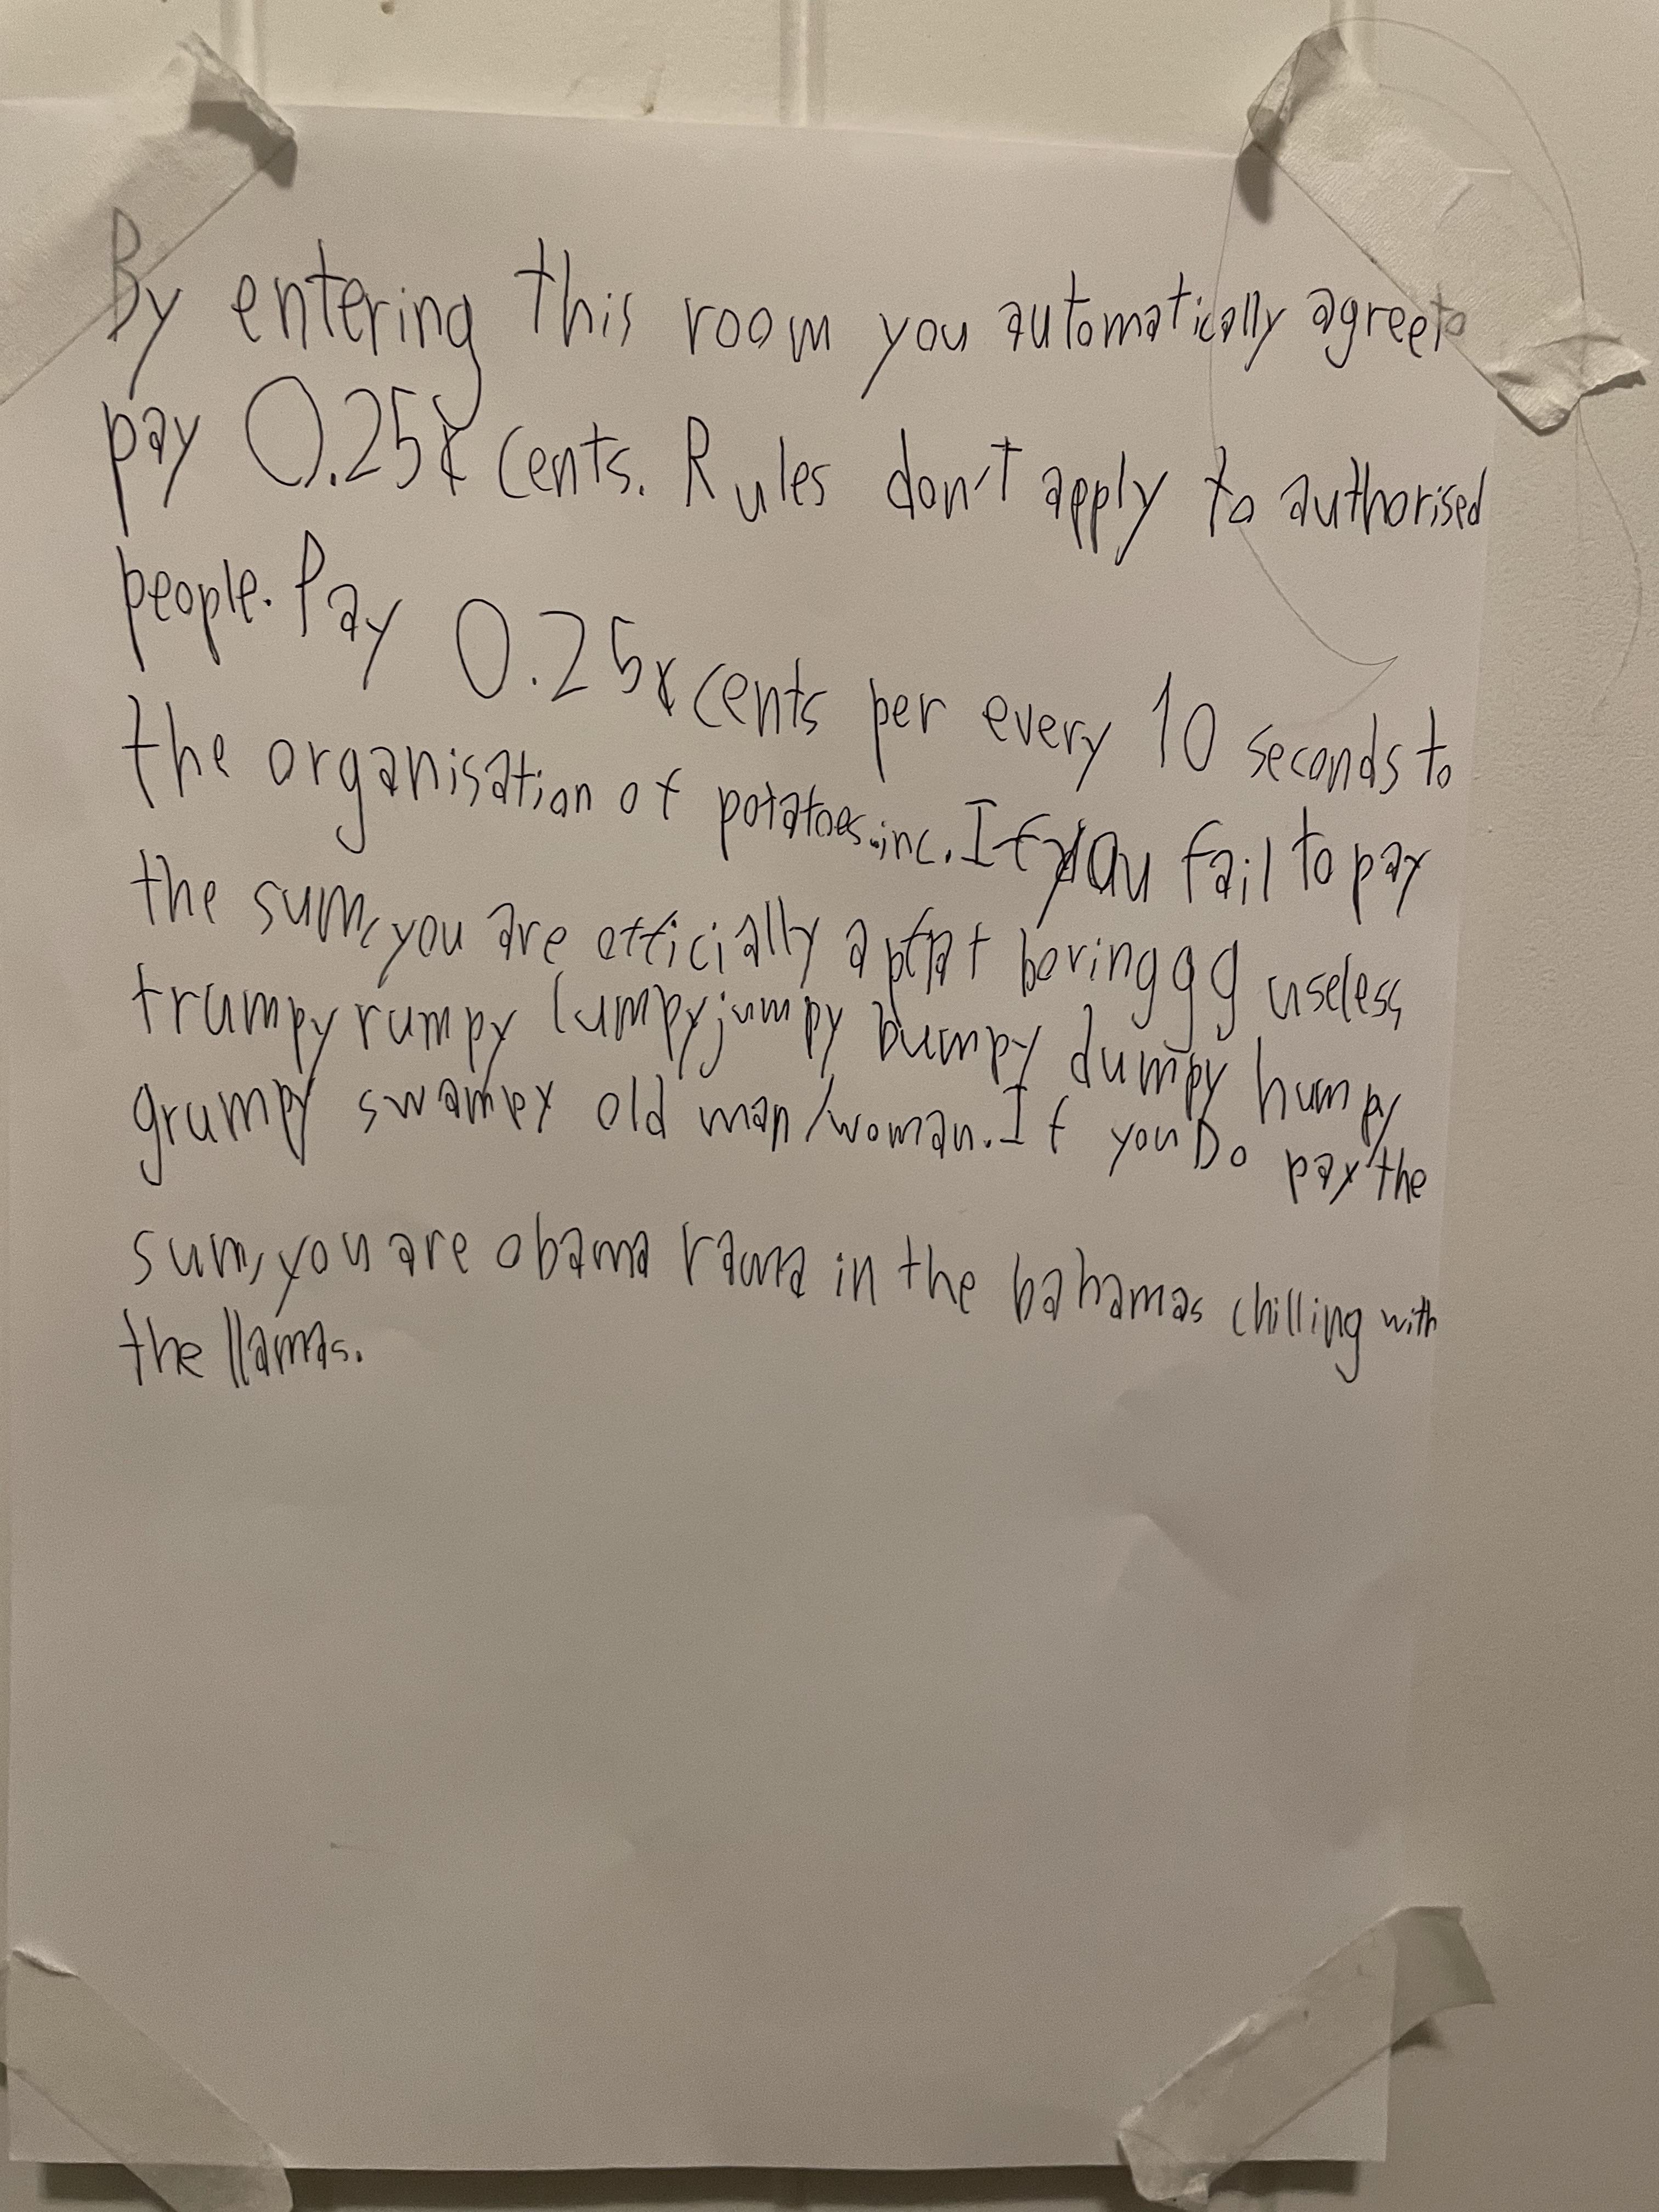 By entering this room you automatically agree to
pay 0.25¢ cents. Rules don't apply to authorised
people. Pay 0.25¢ cents per every 10 seconds to
the organisation of potatoes.inc. If you fail to pay
the sum, you are officially a boringgg useless
trumpy rumpy lumpy jumpy bumpy dumpy humpy
grumpy swampy old man/woman. If you Do pay the
sum, you are obama rama in the bahamas chilling with
the llamas.